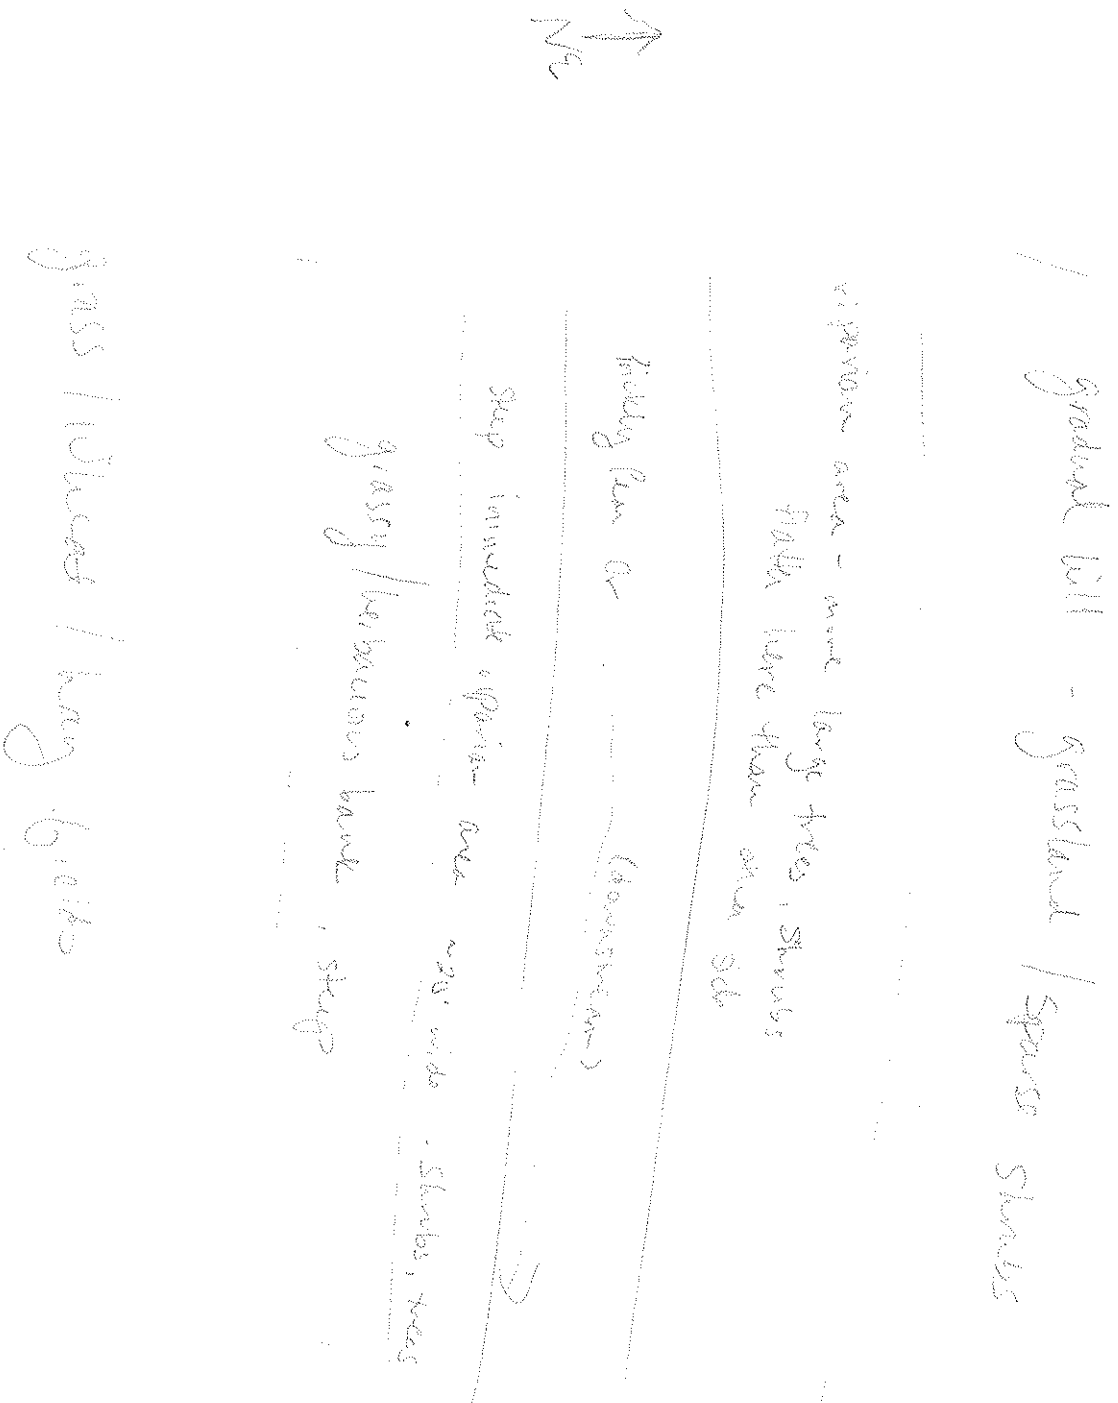 N
/ gradual hill - grassland / Sparse Shrubs
riparian area - more large trees, Shrubs
flatter here than other side
(downstream)
Steep immediate riparian area ~25' wide . Shrubs, trees
grassy/herbaceous bank , steep
grass / Wheat / hay fields